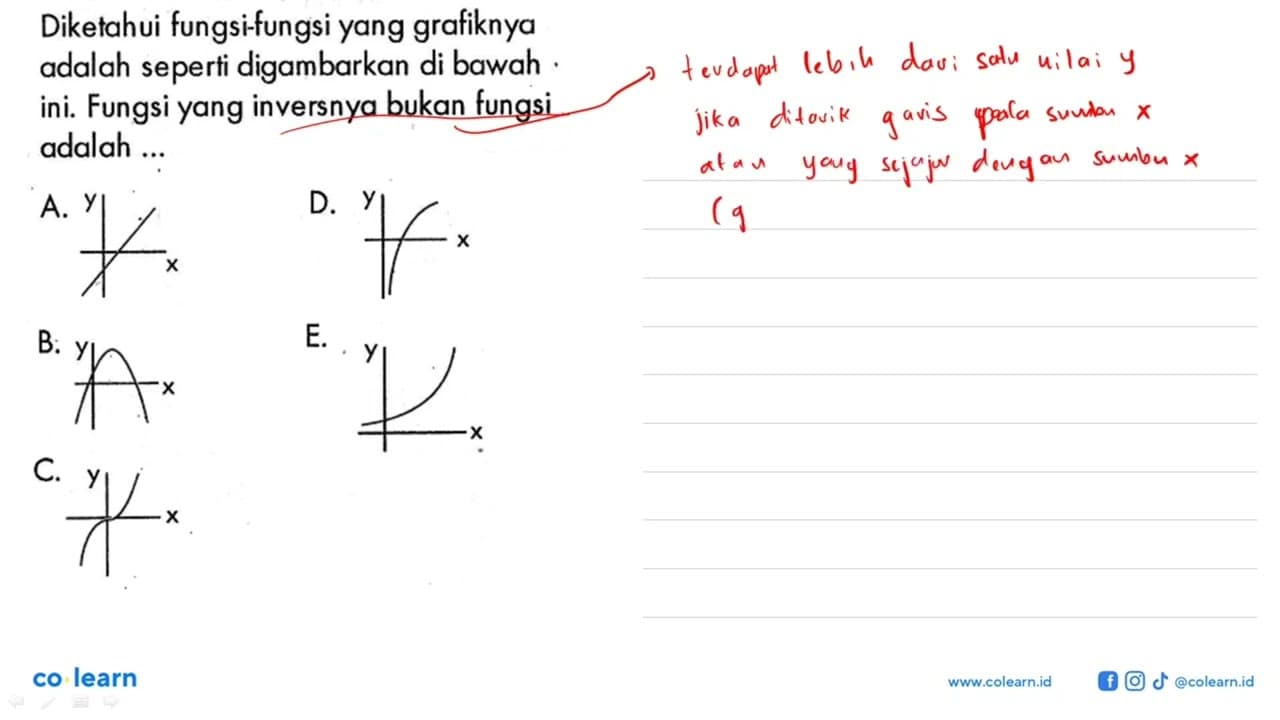 Diketahui fungsi-fungsi yang grafiknya
adalah seperti digambarkan di bawah
ini. Fungsi yang inversnya bukan fungsi
adalah ...
A. y
x
B. y
x
C. y
x
D. y
x
E. y
x
terdapat lebih dari satu nilai y
jika ditarik garis pada sumbu x
atau yang sejajar dengan sumbu x
(g
co learn
www.colearn.id
@colearn.id